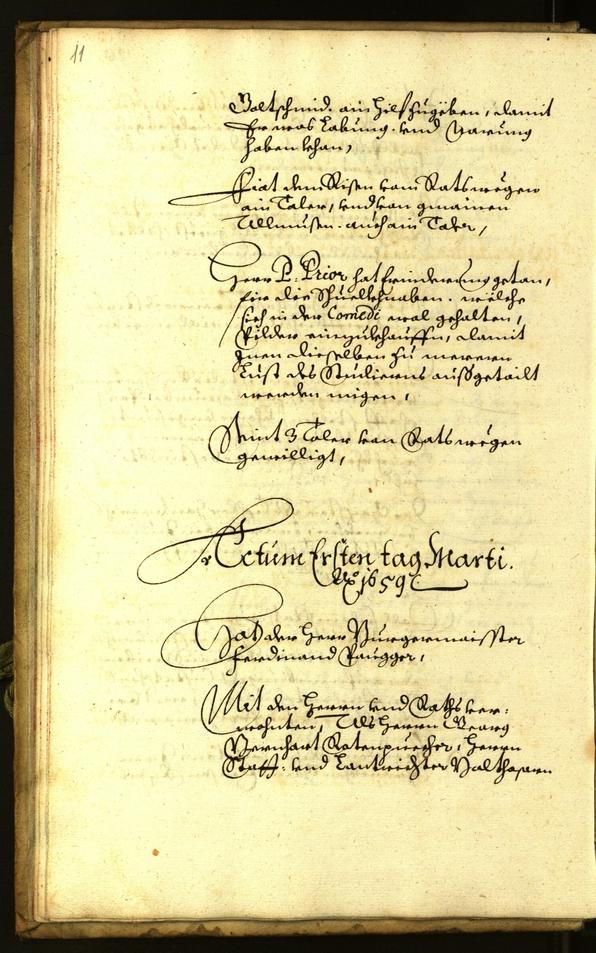 11
Goltschmid. ain hilf zugeben, damit
Er was Labung. vnd Narung
haben khan,
Fiat dem Risen vom Rats wegen
ain Taler, vnd von gmainen
Allmusen. auch ain Taler,
Herr P: Prior hat Erinderung getan,
für die Schuelkhnaben. welche
sich in der Comedi wol gehalten,
Pilder einzukhauffen, damit
Inen dieselben zu mererem
Lust des Studierens außgetailt
werden mögen,
Seint 3 Taler von Rats wegen
gewilligt,
Actum Ersten tag Marti.
Ao 1659
Hat der Herr Burgermaister
Ferdinand Paugger,
Mit den Herrn vnd Raths ver:
wohnten, Als Herrn Georg
Bernhart Rotenpuecher, Herrn
Statt: vnd Lantrichter Balthasarn